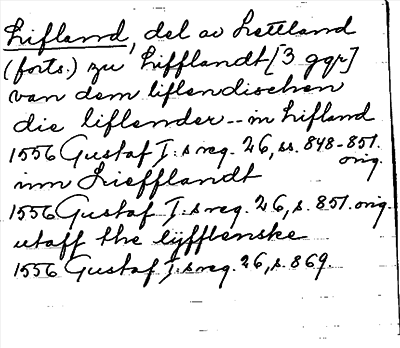 Lifland, del av Lettland
(forts.) zu Lifflandt [3 ggr]
van dem liflendischen
die liflender -- in Lifland
1556 Gustaf I:s reg. 26, ss. 848-851.
orig.
inn Liefflandt
1556 Gustaf I:s reg. 26, s. 851. orig.
utaff the lÿfflenske
1556 Gustaf I:s reg. 26, s. 869.